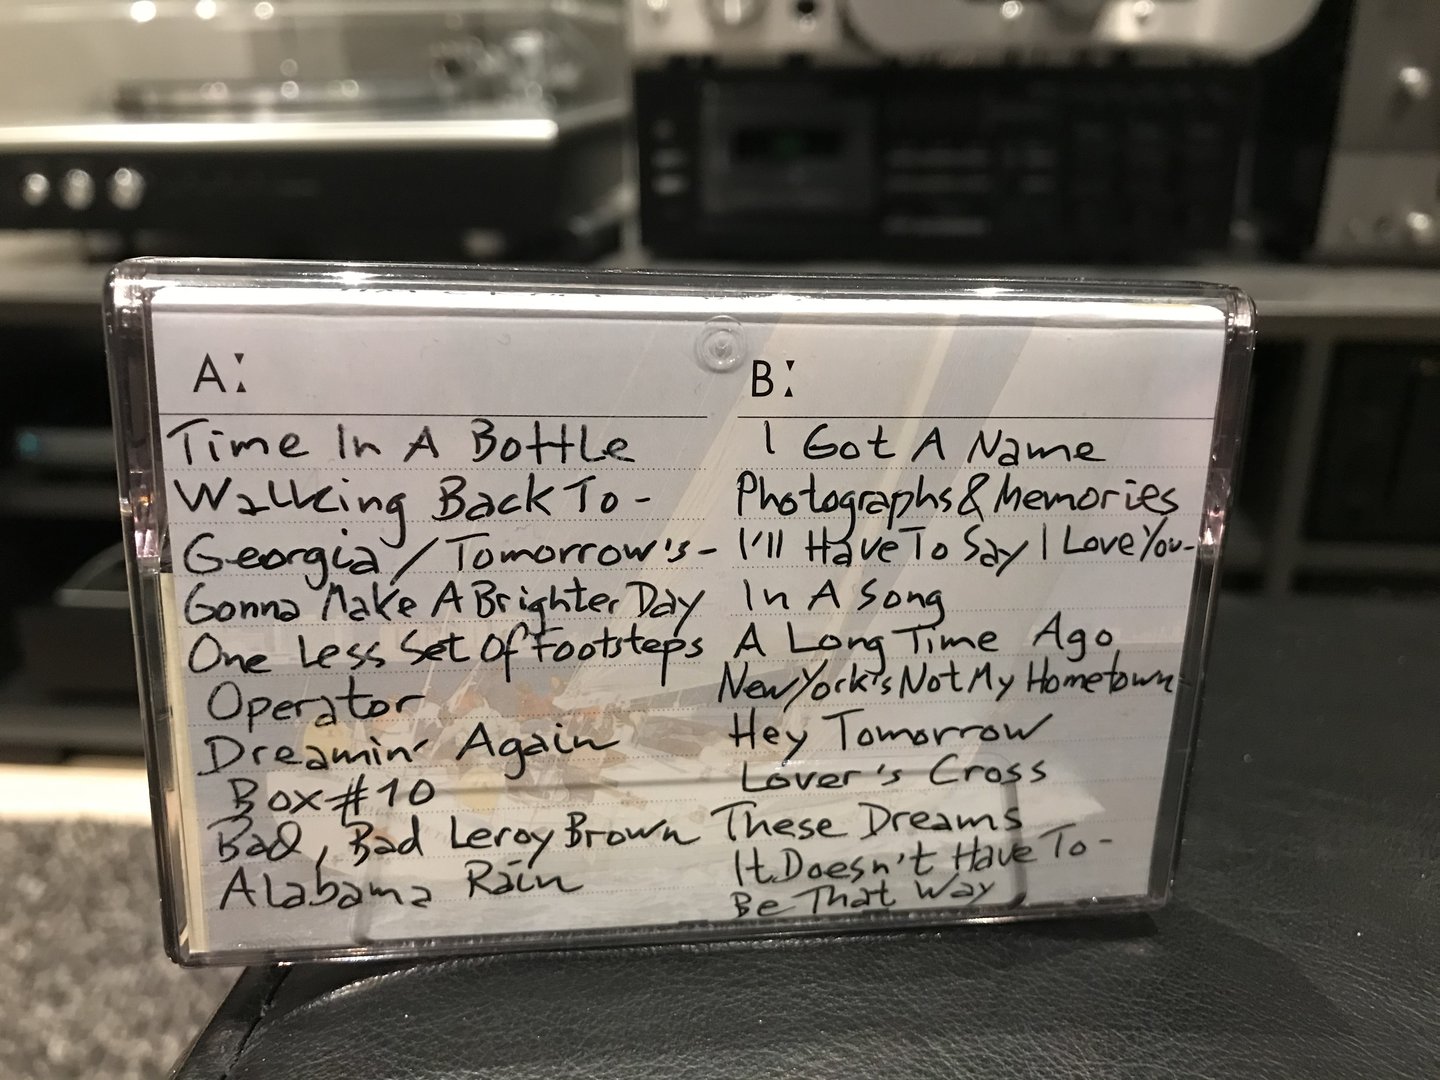 A:
Time In A Bottle
Walking Back To -
Georgia / Tomorrow's -
Gonna Make A Brighter Day
One Less Set Of Footsteps
Operator
Dreamin' Again
Box #10
Bad, Bad Leroy Brown
Alabama Rain
B:
I Got A Name
Photographs & Memories
I'll Have To Say I Love You -
In A Song
A Long Time Ago
New York's Not My Hometown
Hey Tomorrow
Lover's Cross
These Dreams
It Doesn't Have To -
Be That Way